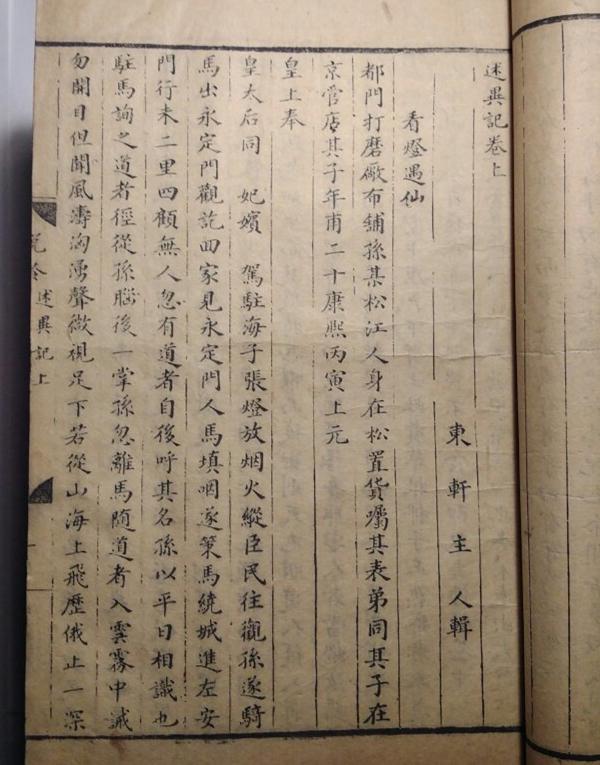 述異記卷上
東軒主人輯
看燈遇仙
都門打磨厰布舖孫某松江人身在松置貨囑其表弟同其子在
京管店其子年甫二十康熙丙寅上元
皇上奉
皇太后同 妃嬪 駕駐海子張燈放烟火縱臣民往觀孫遂騎
馬出永定門觀訖回家見永定門人馬填咽遂策馬繞城進左安
門行未二里四顧無人忽有道者自後呼其名孫以平日相識也
駐馬詢之道者徑從孫腦後一掌孫忽離馬隨道者入雲霧中誡
勿開目但聞風濤洶湧聲微視足下若從山海上飛歷俄止一深
說鈴 述異記上
一